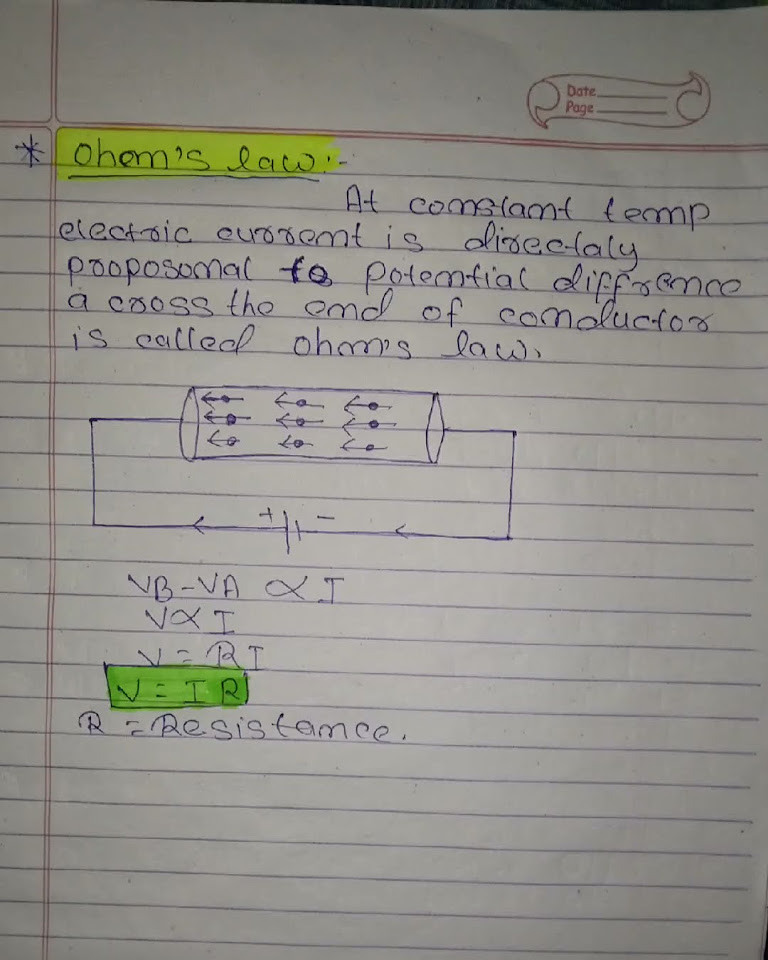 Date
Page
* Ohom's law:-
At comstamt temp
electric current is directaly
proposomal to potemtial differemce
a cross the emd of comductor
is called ohom's law.
+ -
VB-VA ∝ I
V∝ I
V = RI
V = I R
R = Resistamce.